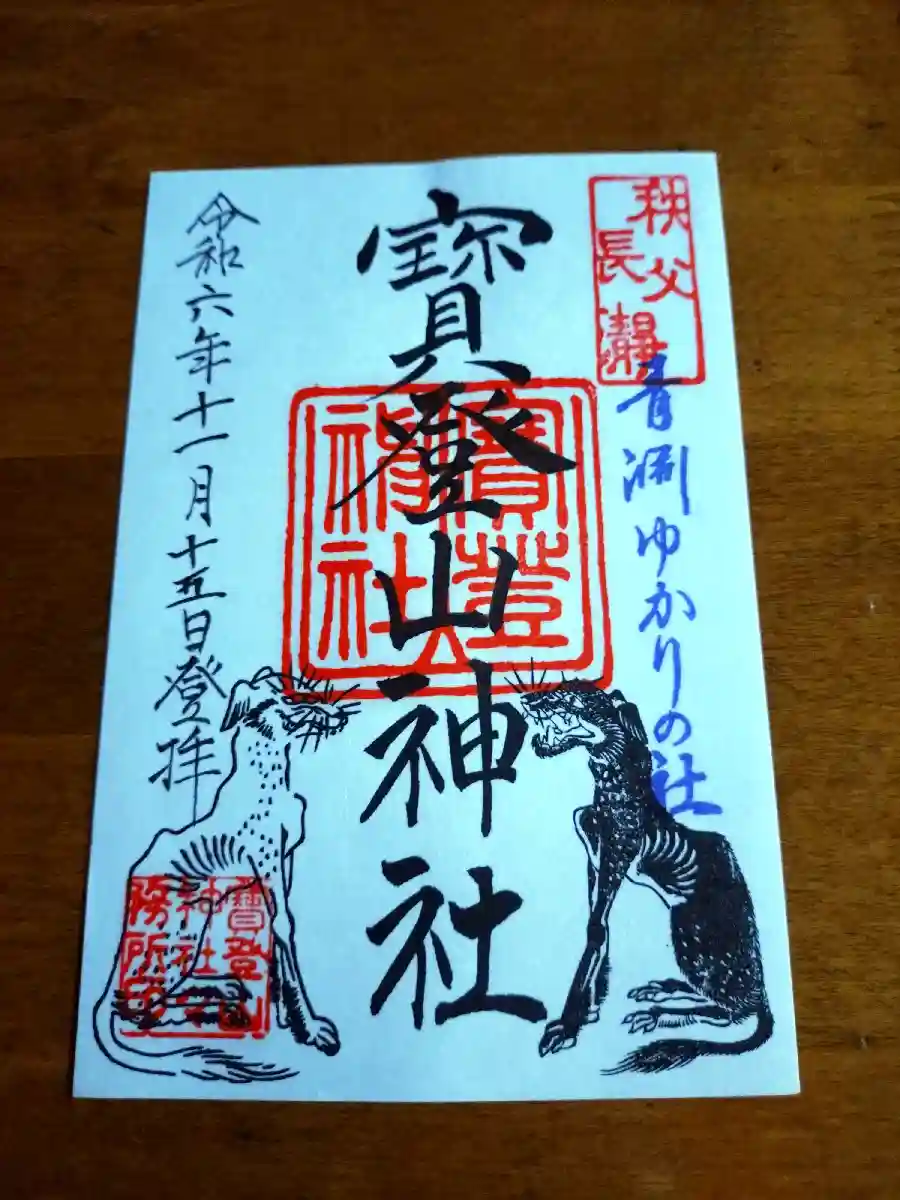 秩父
長瀞
青淵ゆかりの社
寳登山神社
寳登山
神社
令和六年十一月十五日登拝
寳登山
神社
務所印